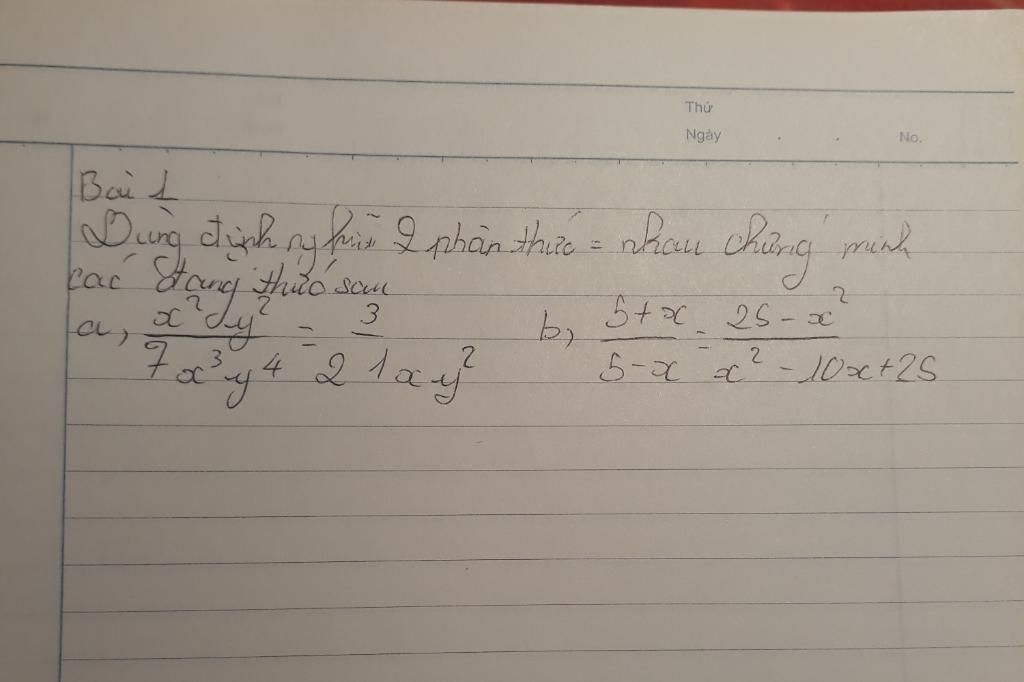 Thứ
Ngày . . No.
Bài 1
Dùng định nghĩa 2 phân thức = nhau chứng minh
các đẳng thức sau
a, x²y²/7x³y⁴ = 3/21xy² b, 5+x/5-x = 25-x²/x²-10x+25